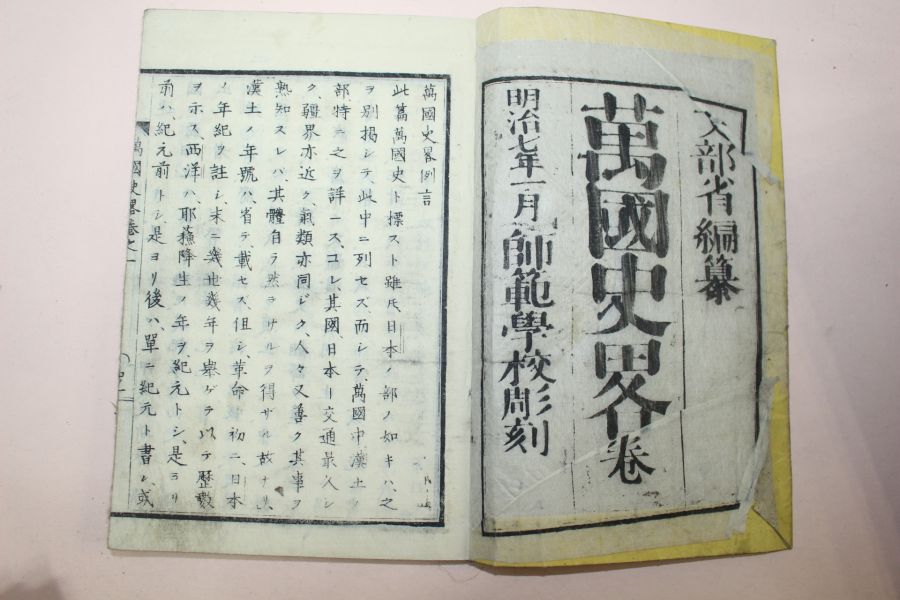 文部省編纂
萬國史畧 卷
明治七年一月 師範學校彫刻
萬國史畧例言
此篇萬國史ト標スト雖𪜈日本ノ部ノ如キハ之
ヲ別掲シテ此中ニ列セズ而シテ萬國中漢土ノ
部特ニ之ヲ詳ニス、コレ其國日本ト交通最久シ
ク、疆界亦近ク氣類亦同ジク、人々又善ク其事ヲ
熟知スレハ、其體自ラ然ラサルヲ得ザル故ナリ、
漢土ノ年號ハ省テ載セズ但シ革命ノ初ニ日本
ノ年紀ヲ註シ末ニ幾世幾年ヲ擧ゲテ以テ歷數
ヲ示ス、西洋ハ、耶蘇降生ノ年ヲ紀元トシ、是ヨリ
前ハ、紀元前トシ是ヨリ後ハ、單ニ紀元ト書シ、或
萬國史畧卷之一